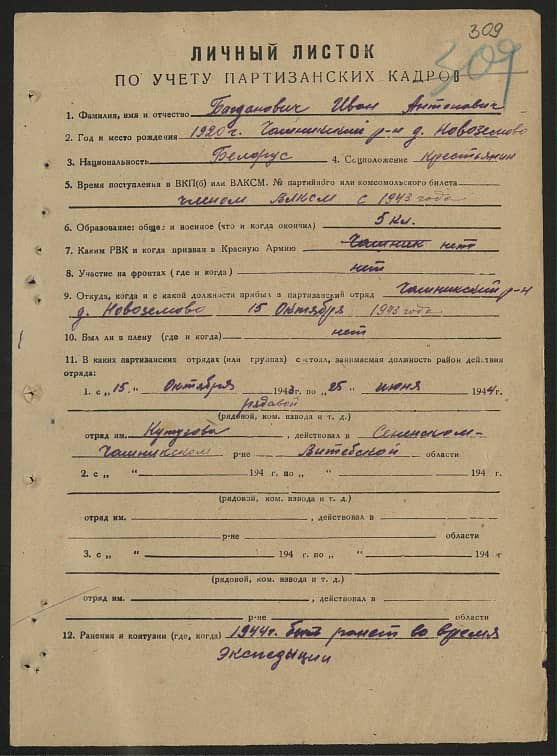 309
309
ЛИЧНЫЙ ЛИСТОК
ПО УЧЕТУ ПАРТИЗАНСКИХ КАДРОВ
1. Фамилия, имя и отчество Богданович Иван Антонович
2. Год и место рождения 1920 г. Чашникский р-н д. Новоземово
3. Национальность Белорус 4. Соцположение Крестьянин
5. Время поступления в ВКП(б) или ВЛКСМ. № партийного или комсомольского билета
членом ВЛКСМ с 1943 года
6. Образование: общее и военное (что и когда окончил) 5 кл.
7. Каким РВК и когда призван в Красную Армию Чашник нет
8. Участие на фронтах (где и когда) нет
9. Откуда, когда и с какой должности прибыл в партизанский отряд Чашникский р-н
д. Новоземово 15 Октября 1943 года
10. Был ли в плену (где и когда) нет
11. В каких партизанских отрядах (или группах) состоял, занимаемая должность район действия
отряда:
1. с „ 15 “ Октября 1943 г. по „ 25 “ июня 1944 г.
рядавой
(рядовой, ком. взвода и т. д.)
отряд им. Кутузова, действовал в Сенинском-
Чашникском р-не Витебской области
2. с „ “ 194 г. по „ “ 194 г.
(рядовой, ком. взвода и т. д.)
отряд им. , действовал в
р-не области
3. с „ “ 194 г. по „ “ 194 г.
(рядовой, ком. взвода и т. д.)
отряд им. , действовал в
р-не области
12. Ранения и контузии (где, когда) 1944 г. был ранет во время
Экспедыции